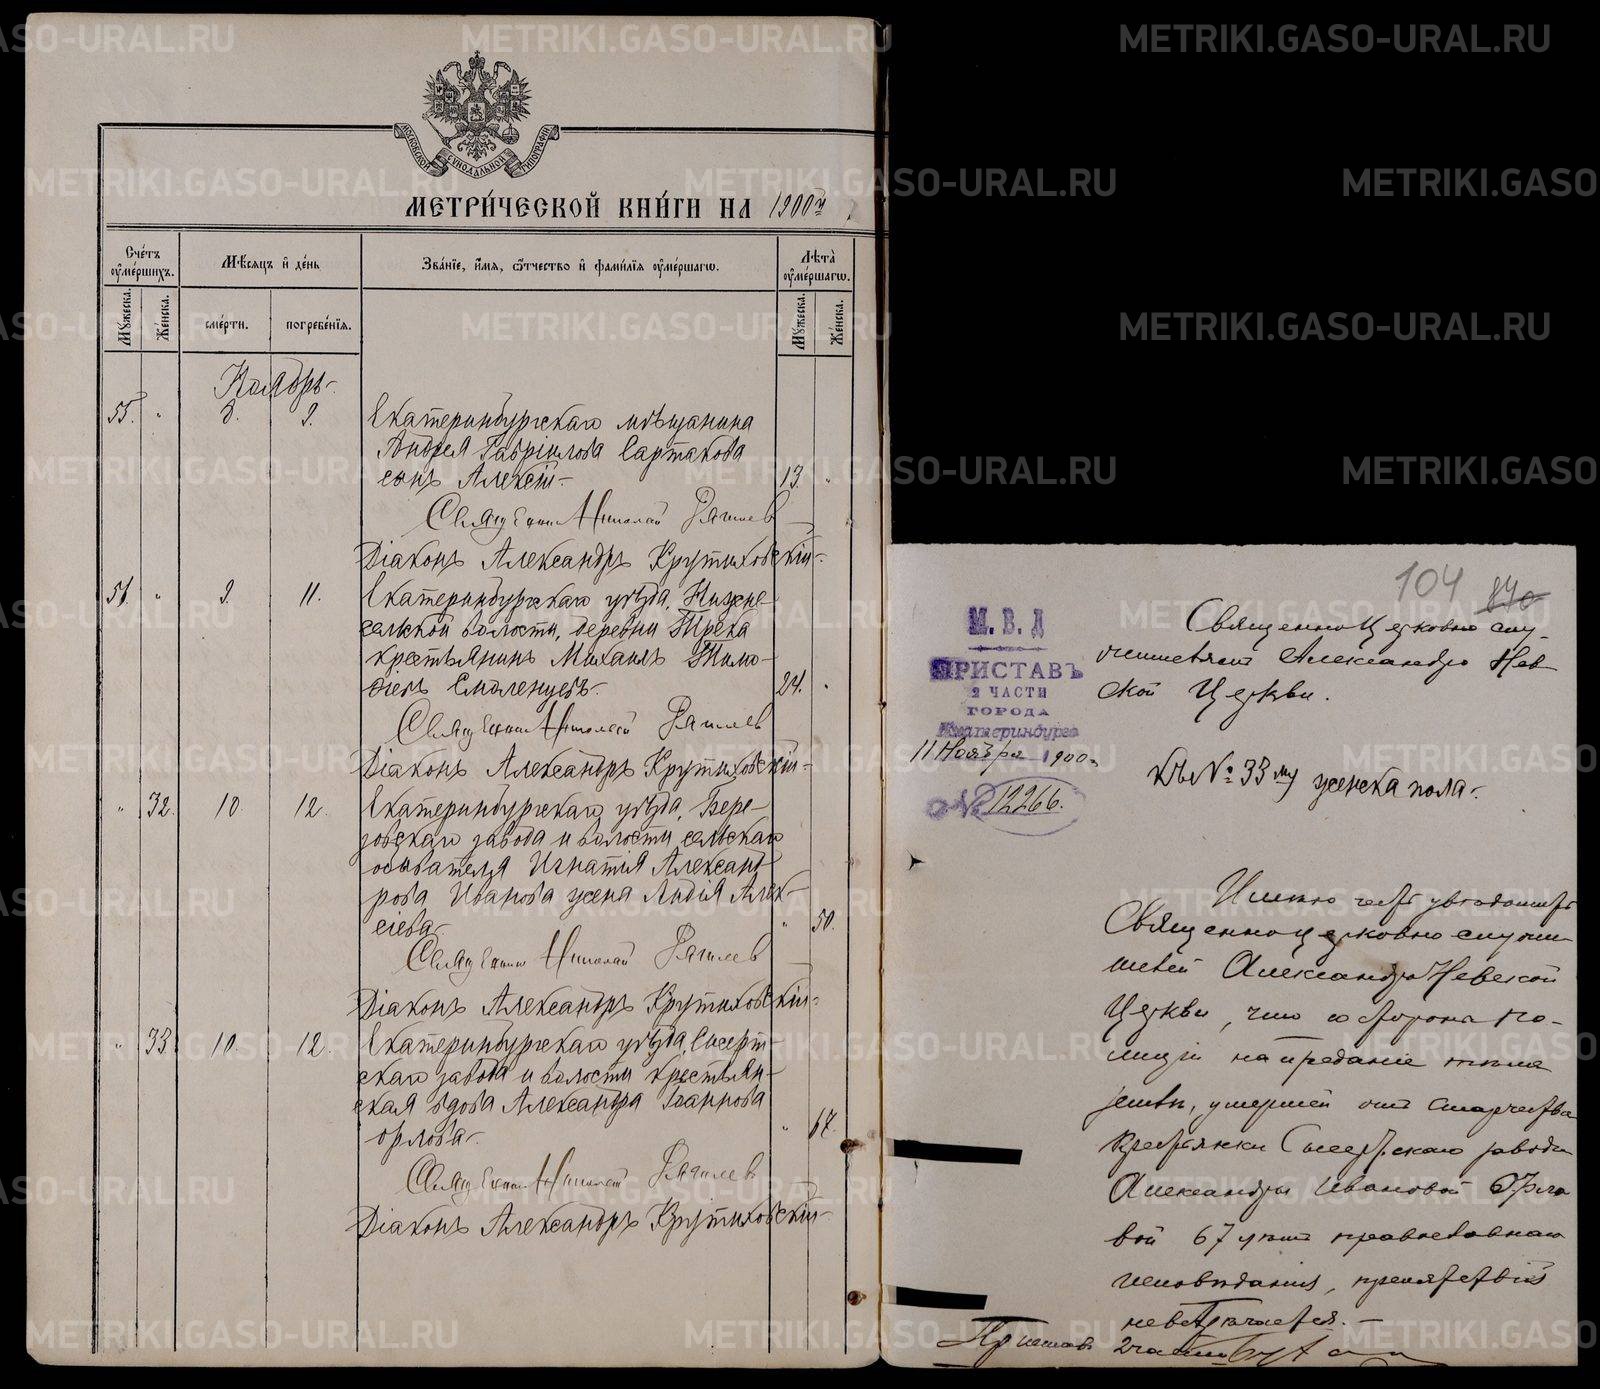 МОСКОВСКОЙ СѴНОДАЛЬНОЙ ТИПОГРАФІИ
МЕТРИ́ЧЕСКОЙ КНИ́ГИ НА 1900й
Сче́тъ ᲂу҆ме́ршихъ.
Мѣ́сяцъ и҆ де́нь
Зва́нїе, и҆́мя, ѻ҆́тчество и҆ фами́лїя ᲂу҆ме́ршагѡ.
Лѣта̀ ᲂу҆ме́ршагѡ.
Мꙋ́жеска.
Же́нска.
сме́рти.
погребе́нїя.
Мꙋ́жеска.
Же́нска.
Ноябрь
55. " 8. 9. Екатеринбургскаго мѣщанина
Андрея Гаврілова Сартакова
сынъ Алексій 13. "
Священникъ Николай
Діаконъ Александръ Крутиховскій
56. " 9. 11. Екатеринбургскаго уѣзда, Нижне-
сельской волости, деревни Трека
крестьянинъ Михаилъ Тимо-
ѳіевъ Смоленцевъ 24. "
Священникъ Николай
Діаконъ Александръ Крутиховскій
" 32. 10 12. Екатеринбургскаго уѣзда, Бере-
зовскаго завода и волости сельскаго
обывателя Игнатія Александ-
рова Иванова жена Лидія Алек-
сіева " 50.
Священникъ Николай
Діаконъ Александръ Крутиховскій
" 33. 10. 12. Екатеринбургскаго уѣзда, Сысерт-
скаго завода и волости крестьян-
ская вдова Александра Іоаннова
Орлова " 67.
Священникъ Николай
Діаконъ Александръ Крутиховскій
104 840
М. В. Д
ПРИСТАВЪ
2 ЧАСТИ
ГОРОДА
Екатеринбурга
11 Ноября 1900 г.
№ 12266.
Священно Церковно слу-
жителямъ Александро Нев-
ской Церкви.
Къ № 33му женска пола
Имѣю честь увѣдомить
Священно церковно служи-
телей Александро Невской
Церкви, что со стороны по-
лиціи на преданіе тѣла
землѣ, умершей отъ старчества
крестьянки Сысертскаго завода
Александры Ивановой Орло
вой 67 лѣтъ православнаго
исповѣданія, препятствій
невстрѣчается. —
Приставъ 2 части
METRIKI.GASO-URAL.RU